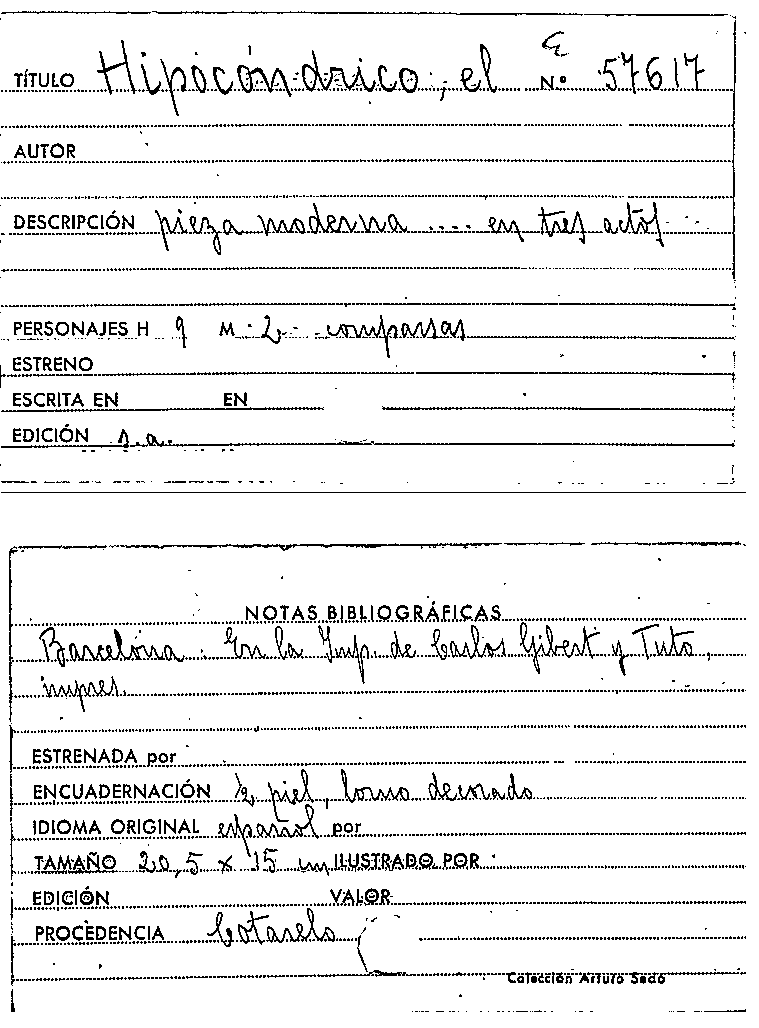 ε
TÍTULO Hipocóndrico, el Nº 57617
AUTOR
DESCRIPCIÓN pieza moderna .... en tres actos
PERSONAJES H 9 M 2 comparsas
ESTRENO
ESCRITA EN EN
EDICIÓN s.a.
NOTAS BIBLIOGRÁFICAS
Barcelona : En la Imp. de Carlos Gibert y Tuto,
impres.
ESTRENADA por
ENCUADERNACIÓN ½ piel, lomo decorado
IDIOMA ORIGINAL español por
TAMAÑO 20,5 x 15 cm ILUSTRADO POR
EDICIÓN VALOR
PROCEDENCIA Cotarelo
Colección Arturo Sedó